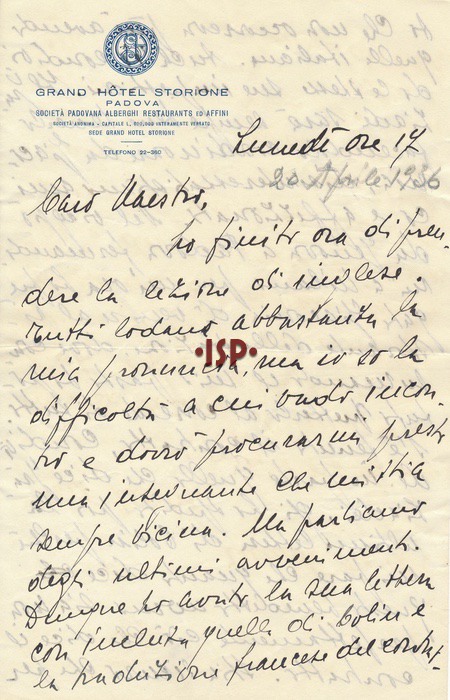 GRAND HÔTEL STORIONE
PADOVA
SOCIETÀ PADOVANA ALBERGHI RESTAURANTS ED AFFINI
SOCIETÀ ANONIMA - CAPITALE L. 600,000 INTERAMENTE VERSATO
SEDE GRAND HOTEL STORIONE
TELEFONO 22-360
Lunedì ore 17
20 Aprile 1936
Caro Maestro,
ho finito ora di pren-
dere la lezione di inglese.
Tutti lodano abbastanza la
mia pronuncia, ma io so la
difficoltà a cui vado incon-
tro e dovrò procurarmi presto
una insegnante che mi stia
sempre vicina. Ma parliamo
degli ultimi avvenimenti.
Dunque ho avuto la sua lettera
con inclusa quella di e
la traduzione francese del
·ISP·